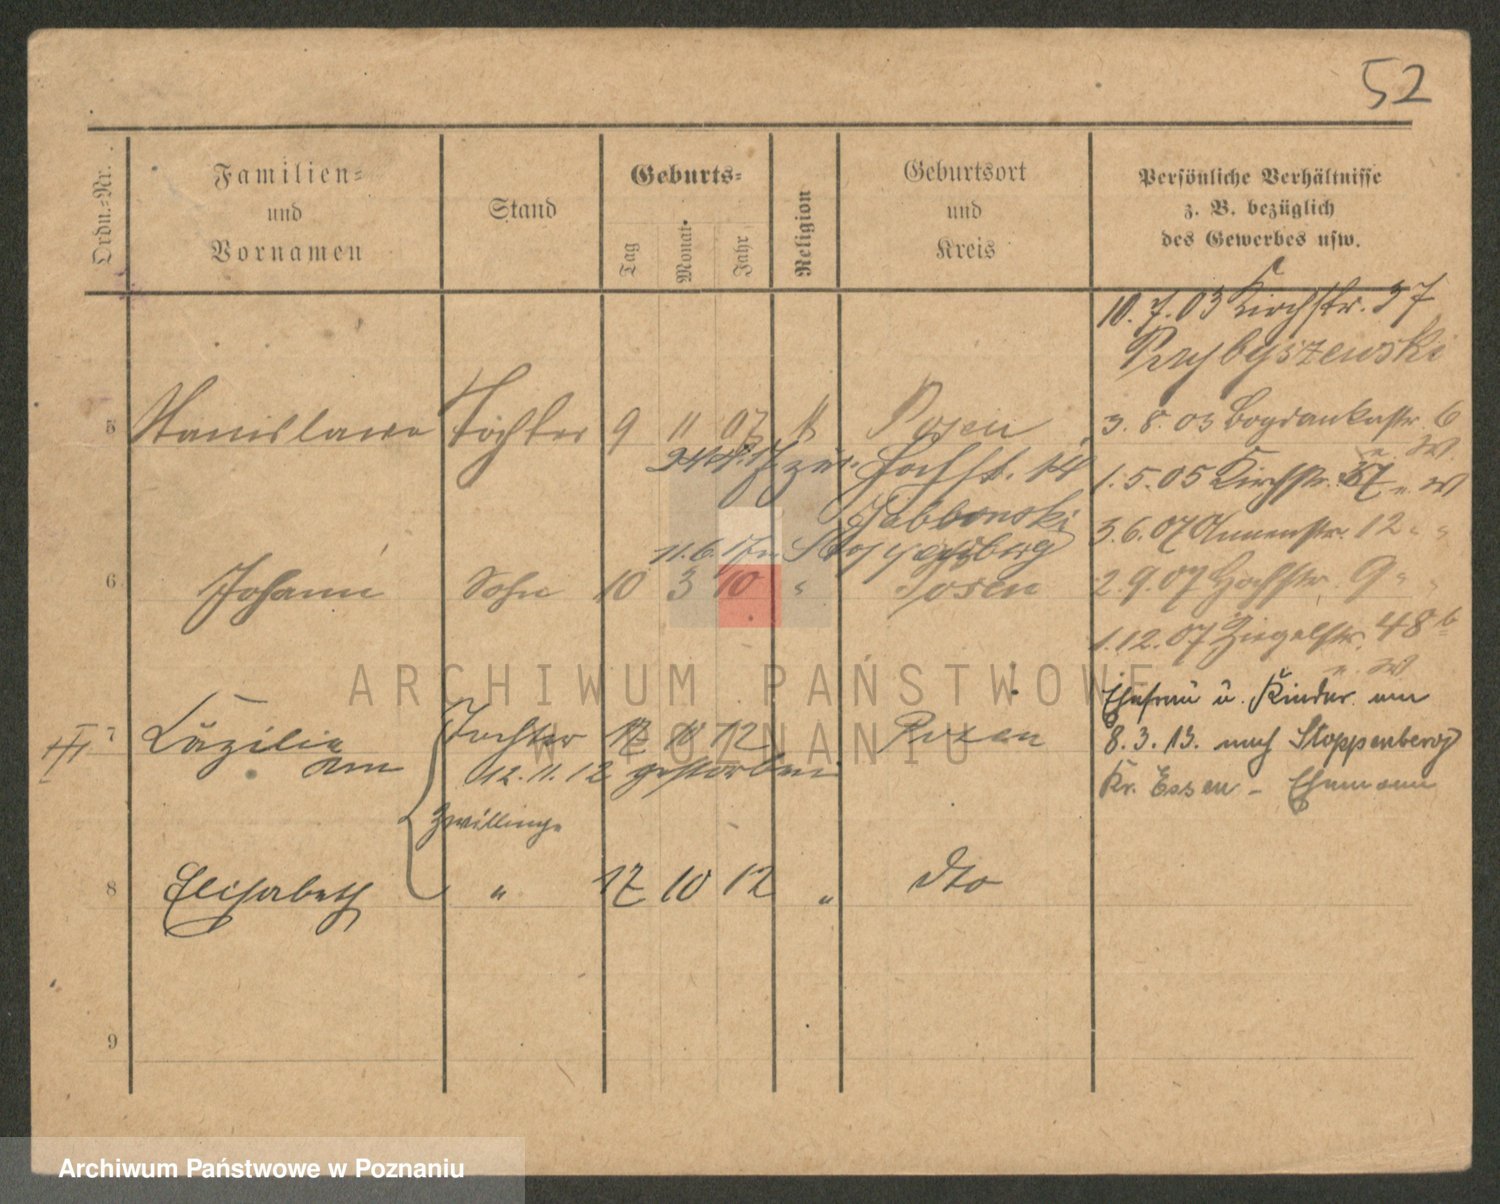 52
Ordn.-Nr.
Familien-
und
Vornamen
Stand
Geburts-
Tag
Monat
Jahr
Religion
Geburtsort
und
Kreis
Persönliche Verhältnisse
z. B. bezüglich
des Gewerbes usw.
10. 7. 03 Kirchstr. 37
Przybyszewski
5 Stanislawa Tochter 9 11 07 k Posen
3. 8. 03 Bogdankastr. 6
u. W.
zur Hochst. 14
1. 5. 05 Kirchstr. 37 u. W
Jablonski
3. 6. 07 Annenstr. 12 " "
11. 6. 17 n Stoppenberg
6 Johann Sohn 10 3 10 " Posen
2. 9. 07 Hochstr. 9 " "
1. 12. 07 Ziegelstr. 48 b
u. W
Ehefrau u. Kinder am
7 Cäzilia Tochter 17 10 12 Posen
8. 3. 13. nach Stoppenberg
am 12. 11. 12 gestorben
Kr. Essen - Ehemann
Zwillinge
8 Elisabeth " 17 10 12 " dto
9
ARCHIWUM PAŃSTWOWE
W POZNANIU
Archiwum Państwowe w Poznaniu